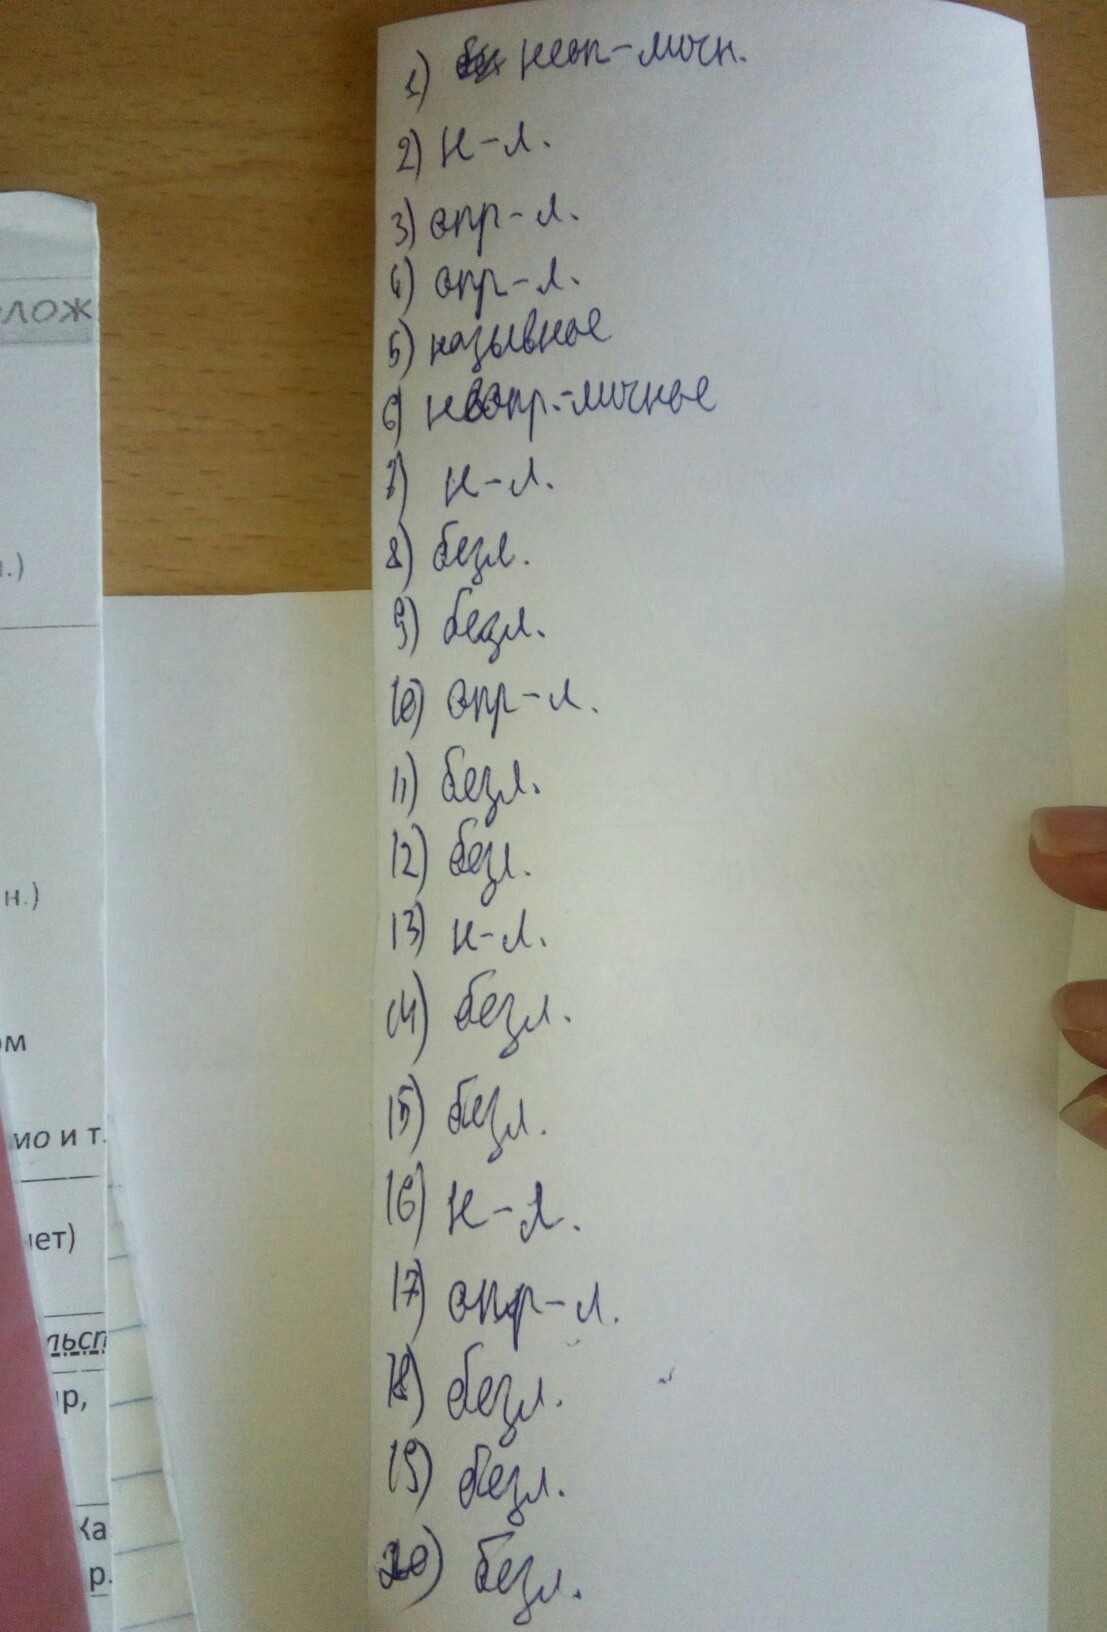 лож
н.)
ом
мо и т.
нет)
льст
р,
Ка
р.
1) неоп-личн.
2) н-л.
3) опр-л.
4) опр-л.
5) назывное
6) неопр.-личное
7) н-л.
8) безл.
9) безл.
10) опр-л.
11) безл.
12) безл.
13) н-л.
14) безл.
15) безл.
16) н-л.
17) опр-л.
18) безл.
19) безл.
20) безл.